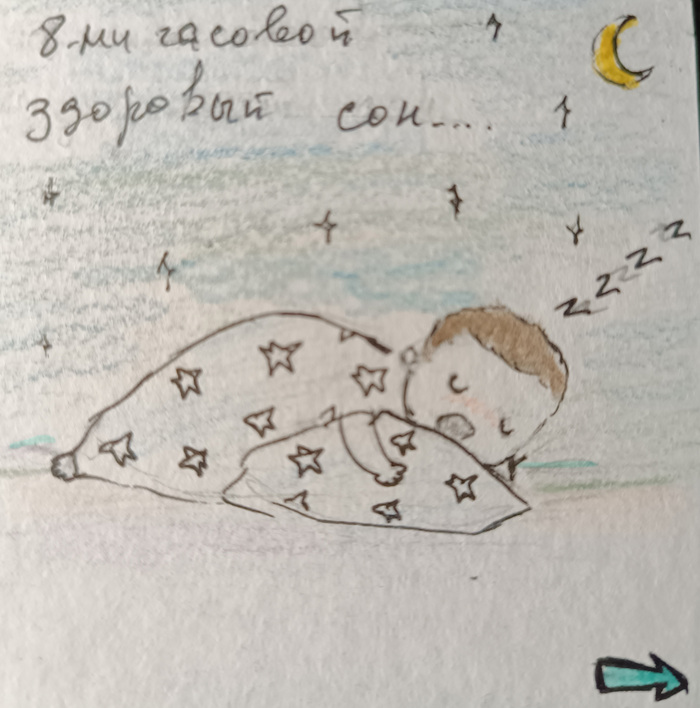 8-ми часовой
здоровый сон....
z z z z z